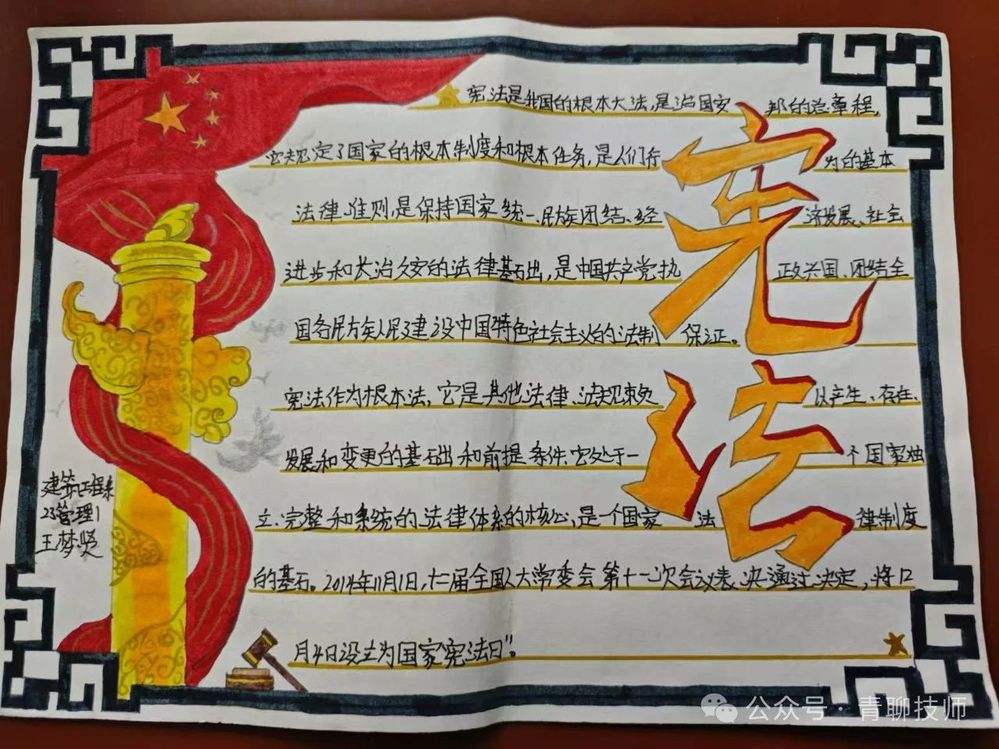 宪法是我国的根本大法，是治国安邦的总章程，
它规定了国家的根本制度和根本任务，是人们行为的基本
法律准则，是保持国家统一、民族团结、经济发展、社会
进步和长治久安的法律基础，是中国共产党执政兴国、团结全
国各民族人民建设中国特色社会主义的法制保证。
宪法作为根本法，它是其他法律、法规束以产生、存在、
发展和变更的基础和前提条件，它处于一个国家独
立、完整和系统的法律体系的核心，是一个国家法律制度
的基石。2014年11月1日，十二届全国人大常委会第十一次会议表决通过决定，将12
月4日设立为国家宪法日”。
宪法
建筑工程系
23管理1
王梦贤
公众号·青聊技师